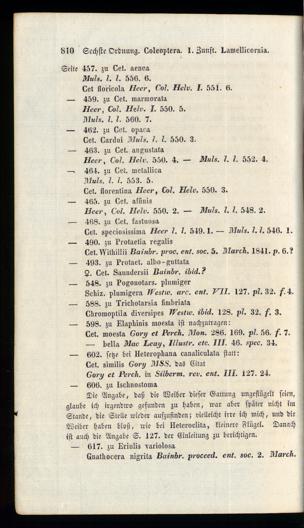 810 Sechste Ordnung. Coleoptera. 1. Zunft. Lamellicornia.
Seite 457. zu Cet. aenea
Muls. l. l. 556. 6.
Cet floricola Heer, Col. Helv. I. 551. 6.
— 459. zu Cet. marmorata
Heer, Col. Helv. I. 550. 5.
Muls. l. l. 560. 7.
— 462. zu Cet. opaca
Cet. Cardui Muls. l. l. 550. 3.
— 463. zu Cet. angustata
Heer, Col. Helv. 550. 4. — Muls. l. l. 552. 4.
— 464. zu Cet. metallica
Muls. l. l. 553. 5.
Cet. florentina Heer, Col. Helv. 550. 3.
— 465. zu Cet. affinis
Heer, Col. Helv. 550. 2. — Muls. l. l. 548. 2.
— 468. zu Cet. fastuosa
Cet. speciosissima Heer l. l. 549. 1. — Muls. l. l. 546. 1.
— 490. zu Protaetia regalis
Cet. Withillii Bainbr. proc. ent. soc. 5. March. 1841. p. 6.?
— 493. zu Protaet. albo-guttata
♀. Cet. Saundersii Bainbr. ibid.?
— 548. zu Pogonotars. plumiger
Schiz. plumigera Westw. arc. ent. VII. 127. pl. 32. f. 4.
— 588. zu Trichotarsia fimbriata
Chromoptila diversipes Westw. ibid. 128. pl. 32. f. 3.
— 598. zu Elaphinis moesta ist nachzutragen:
Cet. moesta Gory et Perch. Mon. 286. 169. pl. 56. f. 7.
— bella Mac Leay, Illustr. etc. III. 46. spec. 34.
— 602. setze bei Heterophana canaliculata statt:
Cet. similis Gory MSS. das Citat
Gory et Perch. in Silberm. rev. ent. III. 127. 24.
— 606. zu Ischnostoma
Die Angabe, daß die Weiber dieser Gattung ungeflügelt seien,
glaube ich irgendwo gefunden zu haben, war aber später nicht im
Stande, die Stelle wieder aufzufinden; vielleicht irre ich mich, und die
Weiber haben bloß, wie bei Heteroclita, kleinere Flügel. Danach
ist auch die Angabe S. 127. der Einleitung zu berichtigen.
— 617. zu Eriulis variolosa
Gnathocera nigrita Bainbr. proceed. ent. soc. 2. March.